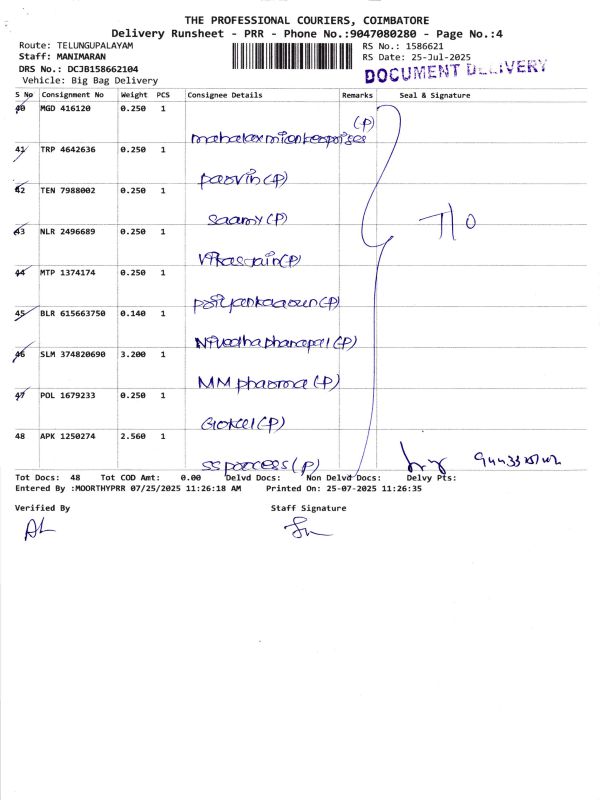 THE PROFESSIONAL COURIERS, COIMBATORE
Delivery Runsheet - PRR - Phone No.:9047080280 - Page No.:4
Route: TELUNGUPALAYAM
RS No.: 1586621
Staff: MANIMARAN
RS Date: 25-Jul-2025
DRS No.: DCJB158662104
DOCUMENT DELIVERY
Vehicle: Big Bag Delivery
S No Consignment No Weight PCS Consignee Details Remarks Seal & Signature
40 MGD 416120 0.250 1
(P)
41 TRP 4642636 0.250 1
parvin (P)
42 TEN 7988002 0.250 1
saamy (P)
T/O
43 NLR 2496689 0.250 1
Vikasjain (P)
44 MTP 1374174 0.250 1
(P)
45 BLR 615663750 0.140 1
(P)
46 SLM 374820690 3.200 1
MM pharma (P)
47 POL 1679233 0.250 1
Gokul (P)
48 APK 1250274 2.560 1
ss process (P)
Tot Docs: 48 Tot COD Amt: 0.00 Delvd Docs: Non Delvd Docs: Delvy Pts:
Entered By :MOORTHYPRR 07/25/2025 11:26:18 AM Printed On: 25-07-2025 11:26:35
Verified By Staff Signature